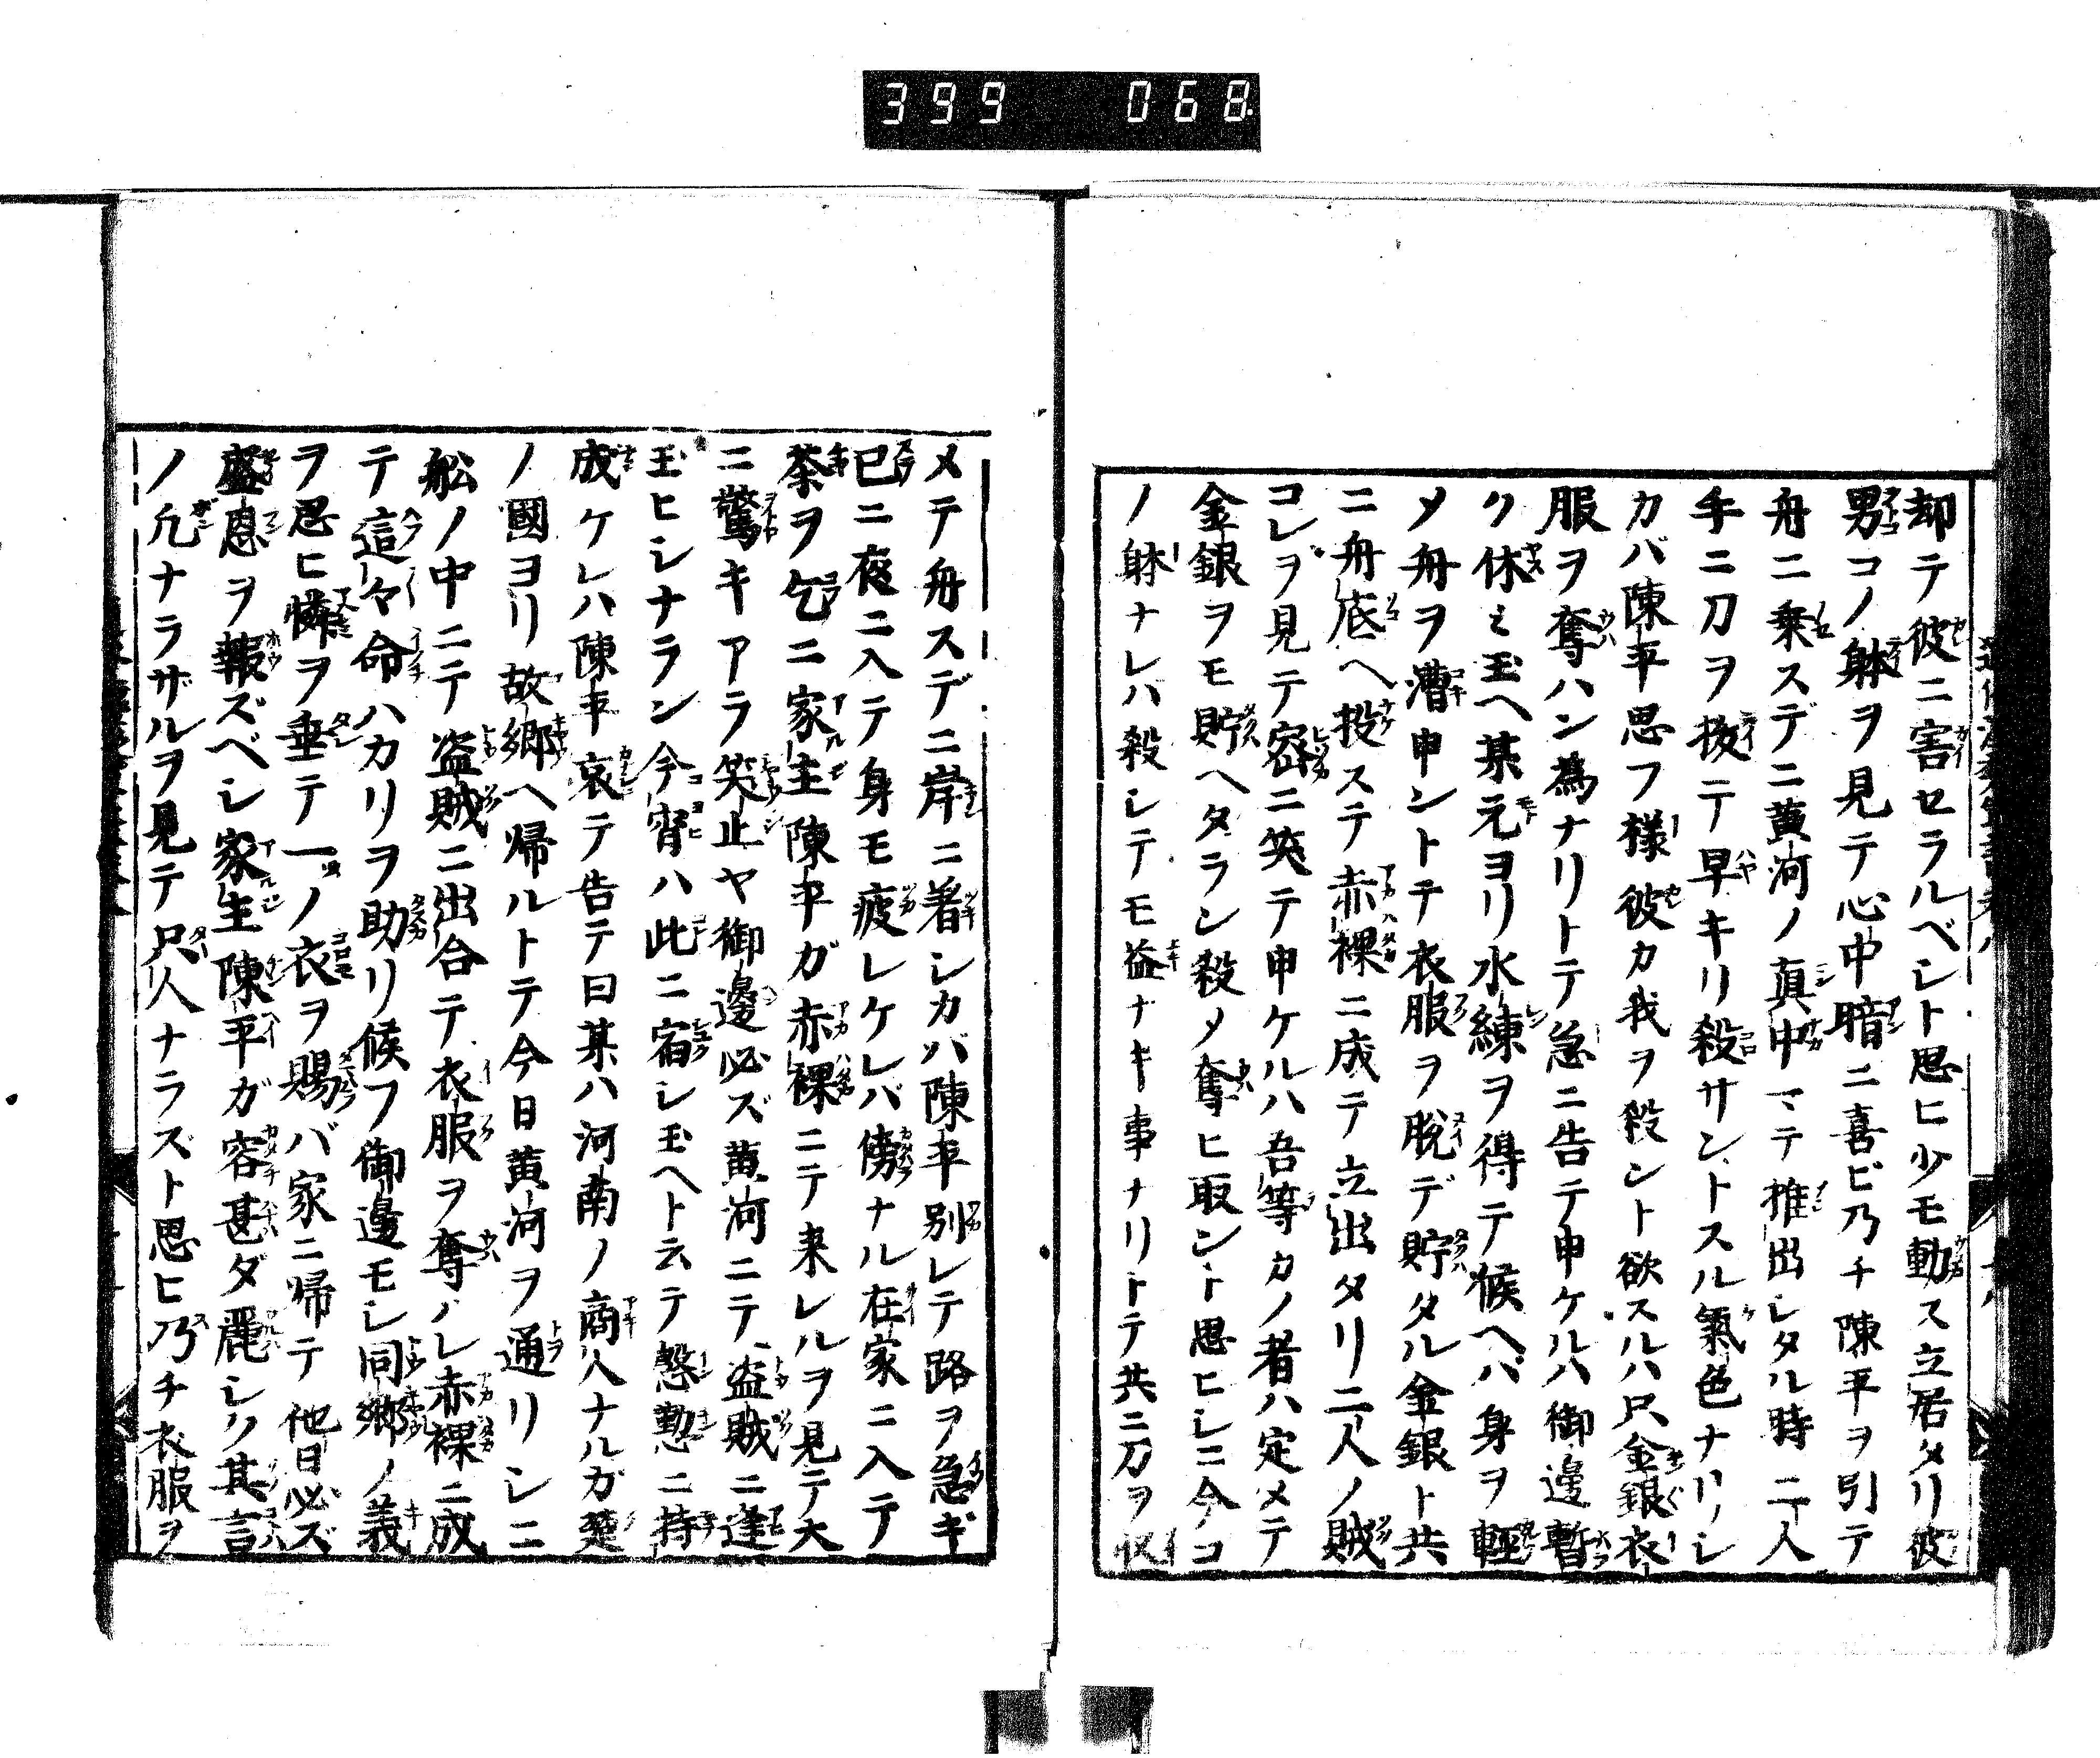 399 068
却テ彼ニ害セラルベシト思ヒ少モ動ス立居タリ彼
男コノ躰ヲ見テ心中暗ニ喜ビ乃チ陳平ヲ引テ
舟ニ乗スデニ黄河ノ真中マテ推出シタル時二人
手ニ刀ヲ抜テ早キリ殺サントスル氣色ナリシ
カバ陳平思フ様彼カ我ヲ殺ント欲スルハ只金銀衣
服ヲ奪ハン為ナリトテ急ニ告テ申ケルハ御邊暫
ク休ミ玉ヘ某元ヨリ水練ヲ得テ候ヘバ身ヲ軽
メ舟ヲ漕申ントテ衣服ヲ脱デ貯タル金銀ト共
ニ舟底ヘ投ステ赤裸ニ成テ立出タリ二人ノ賊
コレヲ見テ密ニ笑テ申ケルハ吾等カノ者ハ定メテ
金銀ヲモ貯ヘタラン殺メ奪ヒ取ント思ヒシニ今コ
ノ躰ナレハ殺シテモ益ナキ事ナリトテ共ニ刀ヲ収
メテ舟スデニ岸ニ着シカバ陳平別レテ路ヲ急ギ
已ニ夜ニ入テ身モ疲レケレバ傍ナル在家ニ入テ
茶ヲ乞ニ家主陳平ガ赤裸ニテ来レルヲ見テ大
ニ驚キアラ笑止ヤ御邊必ズ黄河ニテ盗賊ニ逢
玉ヒシナラン今宵ハ此ニ宿シ玉ヘト云テ慇懃ニ持
成ケレハ陳平哀テ告テ曰某ハ河南ノ商人ナルガ楚
ノ國ヨリ故郷ヘ帰ルトテ今日黄河ヲ通リシニ
舩ノ中ニテ盗賊ニ出合テ衣服ヲ奪ハレ赤裸ニ成
テ這々命ハカリヲ助リ候フ御邊モシ同郷ノ義
ヲ思ヒ憐ヲ垂テ一ノ衣ヲ賜バ家ニ帰テ他日必ズ
盛恩ヲ報ズベシ家主陳平ガ容甚ダ麗シク其言
ノ凢ナラザルヲ見テ只人ナラズト思ヒ乃チ衣服ヲ